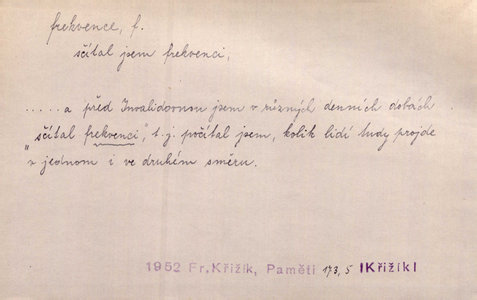 frekvence, f.
sčítal jsem frekvenci,
..... a před Invalidovnou jsem v různých denních dobách
„sčítal frekvenci", t. j. počítal jsem, kolik lidí tudy projde
v jednom i ve druhém směru.
1952 Fr.Křižík, Paměti 173,5 |Křižík|